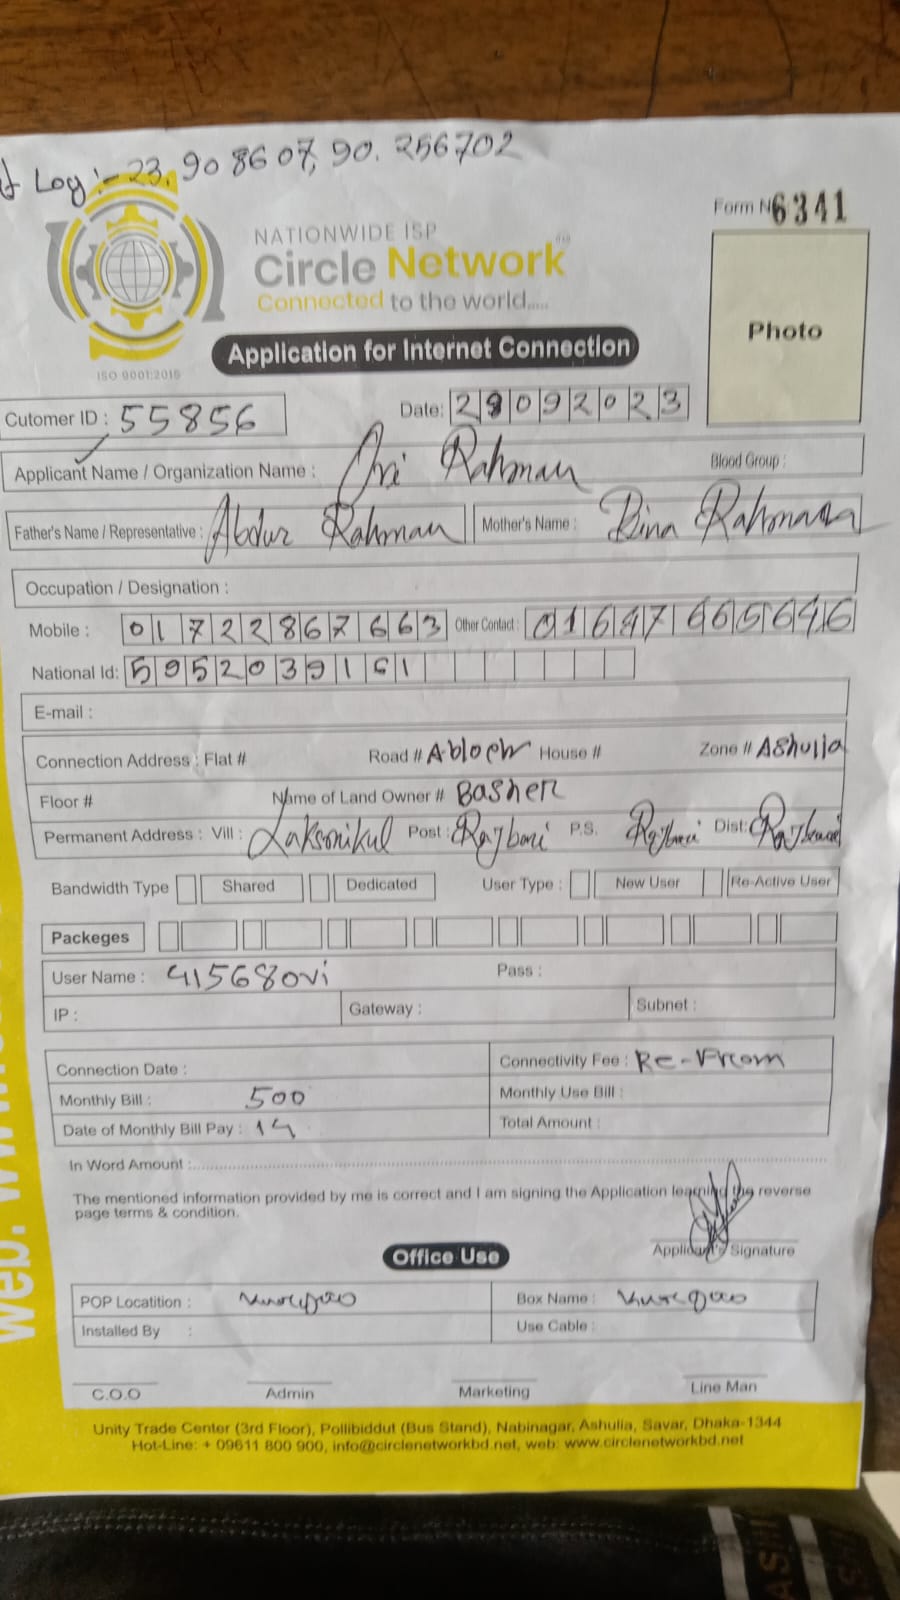 Log :- 23.908607, 90.256702
Form No 6341
NATIONWIDE ISP
Circle Network
Connected to the world.....
Photo
Application for Internet Connection
ISO 9001:2015
Cutomer ID : 55856
Date: 28092023
Applicant Name / Organization Name : Ovi Rahman
Blood Group :
Father's Name / Representative : Abdur Rahman
Mother's Name : Rina Rahman
Occupation / Designation :
Mobile : 01722867663 Other Contact : 01647665646
National Id: 5952039151
E-mail :
Connection Address : Flat # Road # House # Zone # Ashulia
Floor # Name of Land Owner # Basher
Permanent Address : Vill : Laksonikul Post : Rajbari P.S. Rajbari Dist: Rajbari
Bandwidth Type Shared Dedicated User Type : New User Re-Active User
Packeges
User Name : 415680vi Pass :
IP : Gateway : Subnet :
Connection Date : Connectivity Fee :
Monthly Bill : 500 Monthly Use Bill :
Date of Monthly Bill Pay : 14 Total Amount :
In Word Amount :
The mentioned information provided by me is correct and I am signing the Application learning the reverse
page terms & condition.
Applicant's Signature
Office Use
POP Locatition : Box Name :
Installed By : Use Cable :
C.O.O Admin Marketing Line Man
Unity Trade Center (3rd Floor), Pollibiddut (Bus Stand), Nabinagar, Ashulia, Savar, Dhaka-1344
Hot-Line: + 09611 800 900, info@circlenetworkbd.net, web: www.circlenetworkbd.net